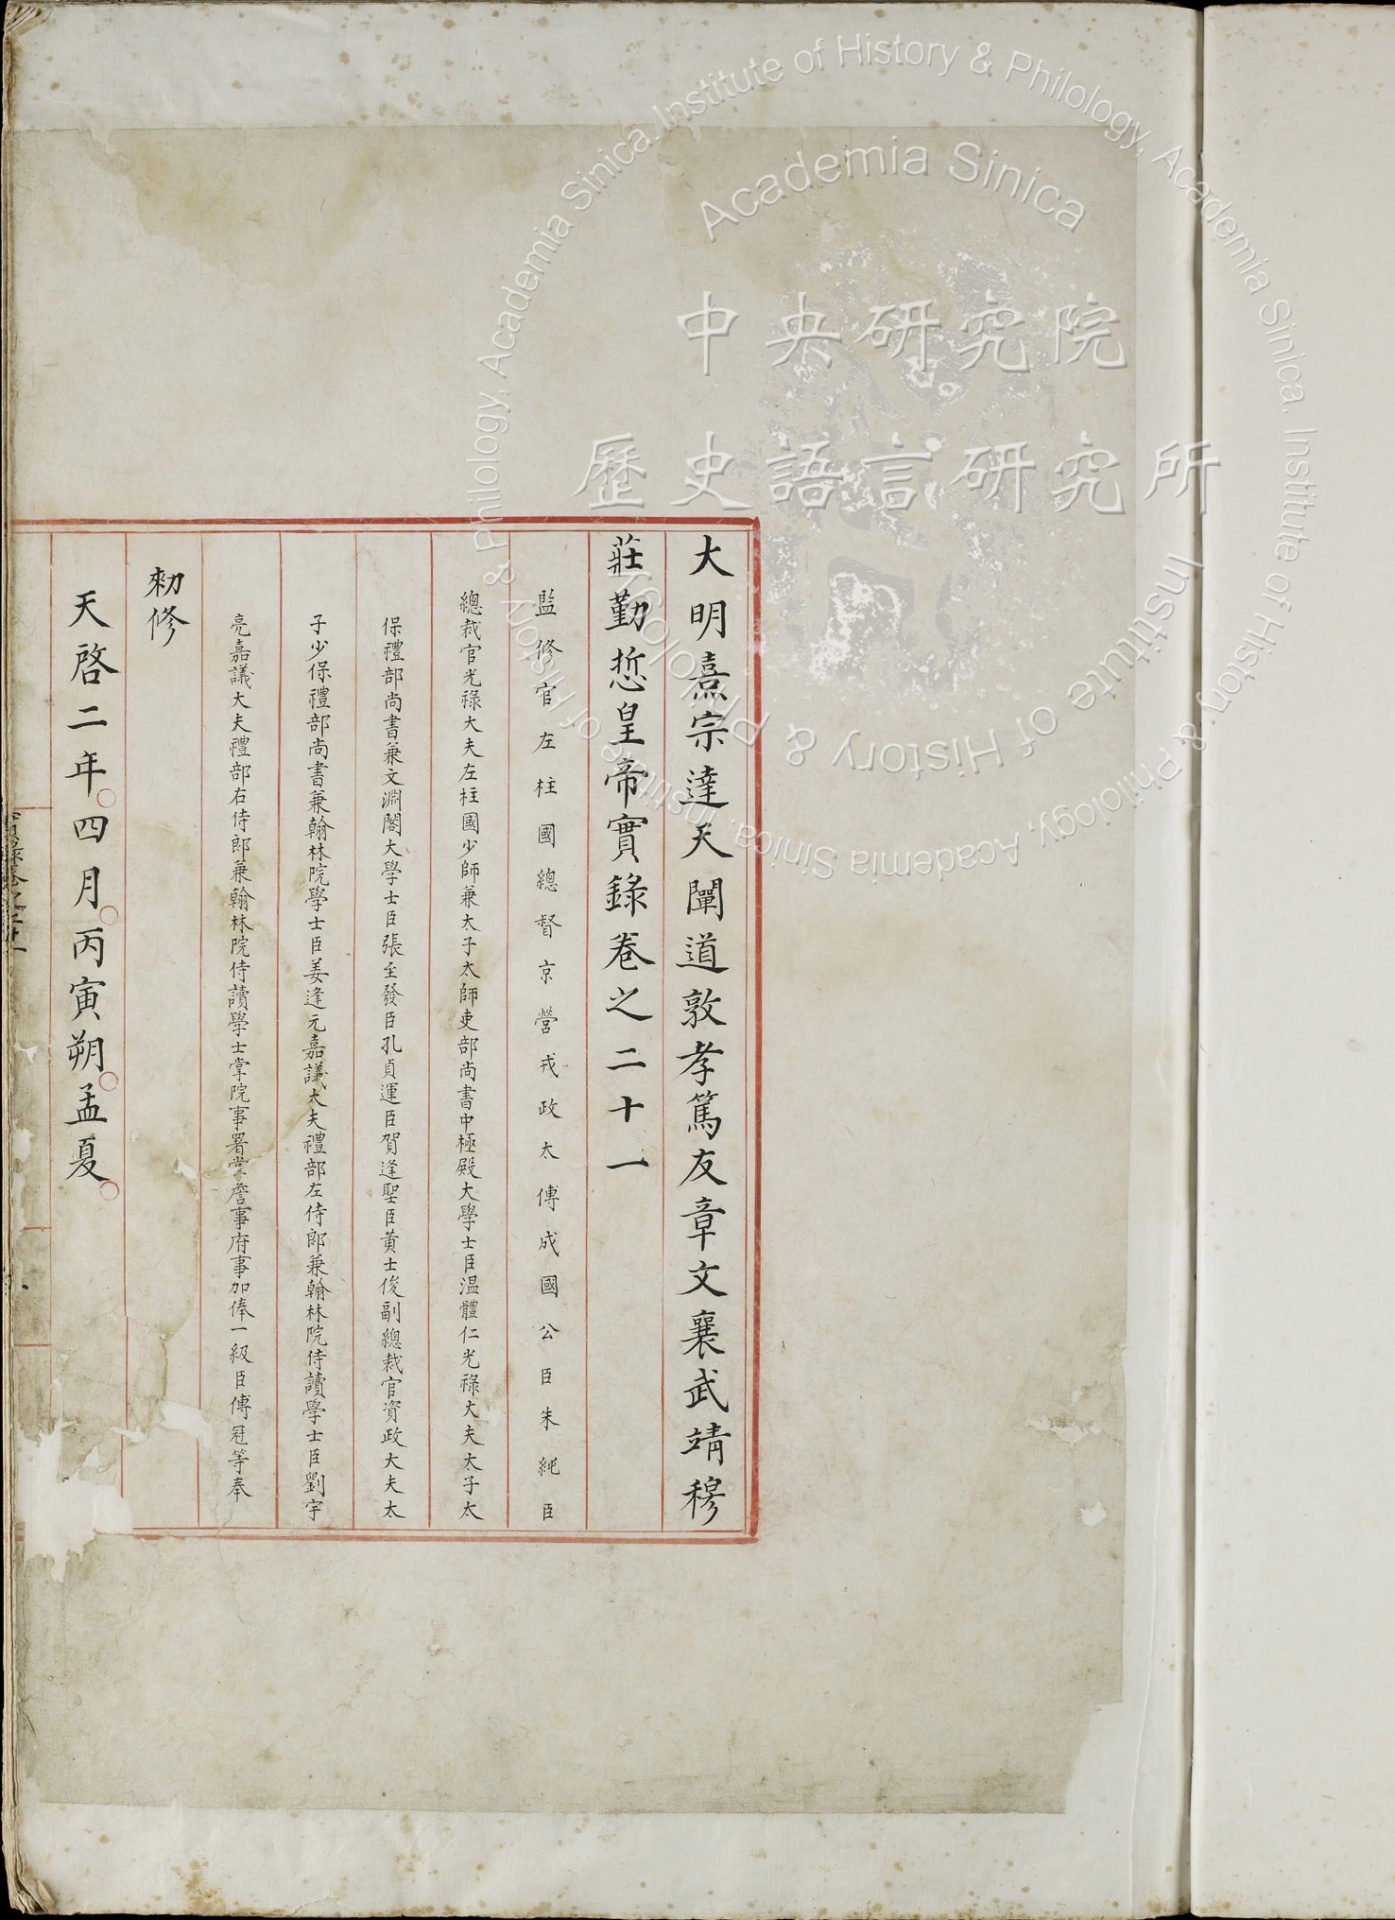 大明熹宗達天闡道敦孝篤友章文襄武靖穆
莊勤悊皇帝實錄卷之二十一
監修官左柱國總督京營戎政太傅成國公臣朱純臣
總裁官光祿大夫左柱國少師兼太子太師吏部尚書中極殿大學士臣温體仁光祿大夫太子太
保禮部尚書兼文淵閣大學士臣張至發臣孔貞運臣賀逢聖臣黃士俊副總裁官資政大夫太
子少保禮部尚書兼翰林院學士臣姜逢元嘉議大夫禮部左侍郎兼翰林院侍讀學士臣劉宇
亮嘉議大夫禮部右侍郎兼翰林院侍讀學士掌院事署掌詹事府事加俸一級臣傅冠等奉
勑修
天啓二年四月丙寅朔孟夏
中央研究院
歷史語言研究所
Academia Sinica
Institute of History & Philology
Institute of History & Philology, Academia Sinica. Institute of History & Philology, Academia Sinica. Institute of History & Philology, Academia Sinica.